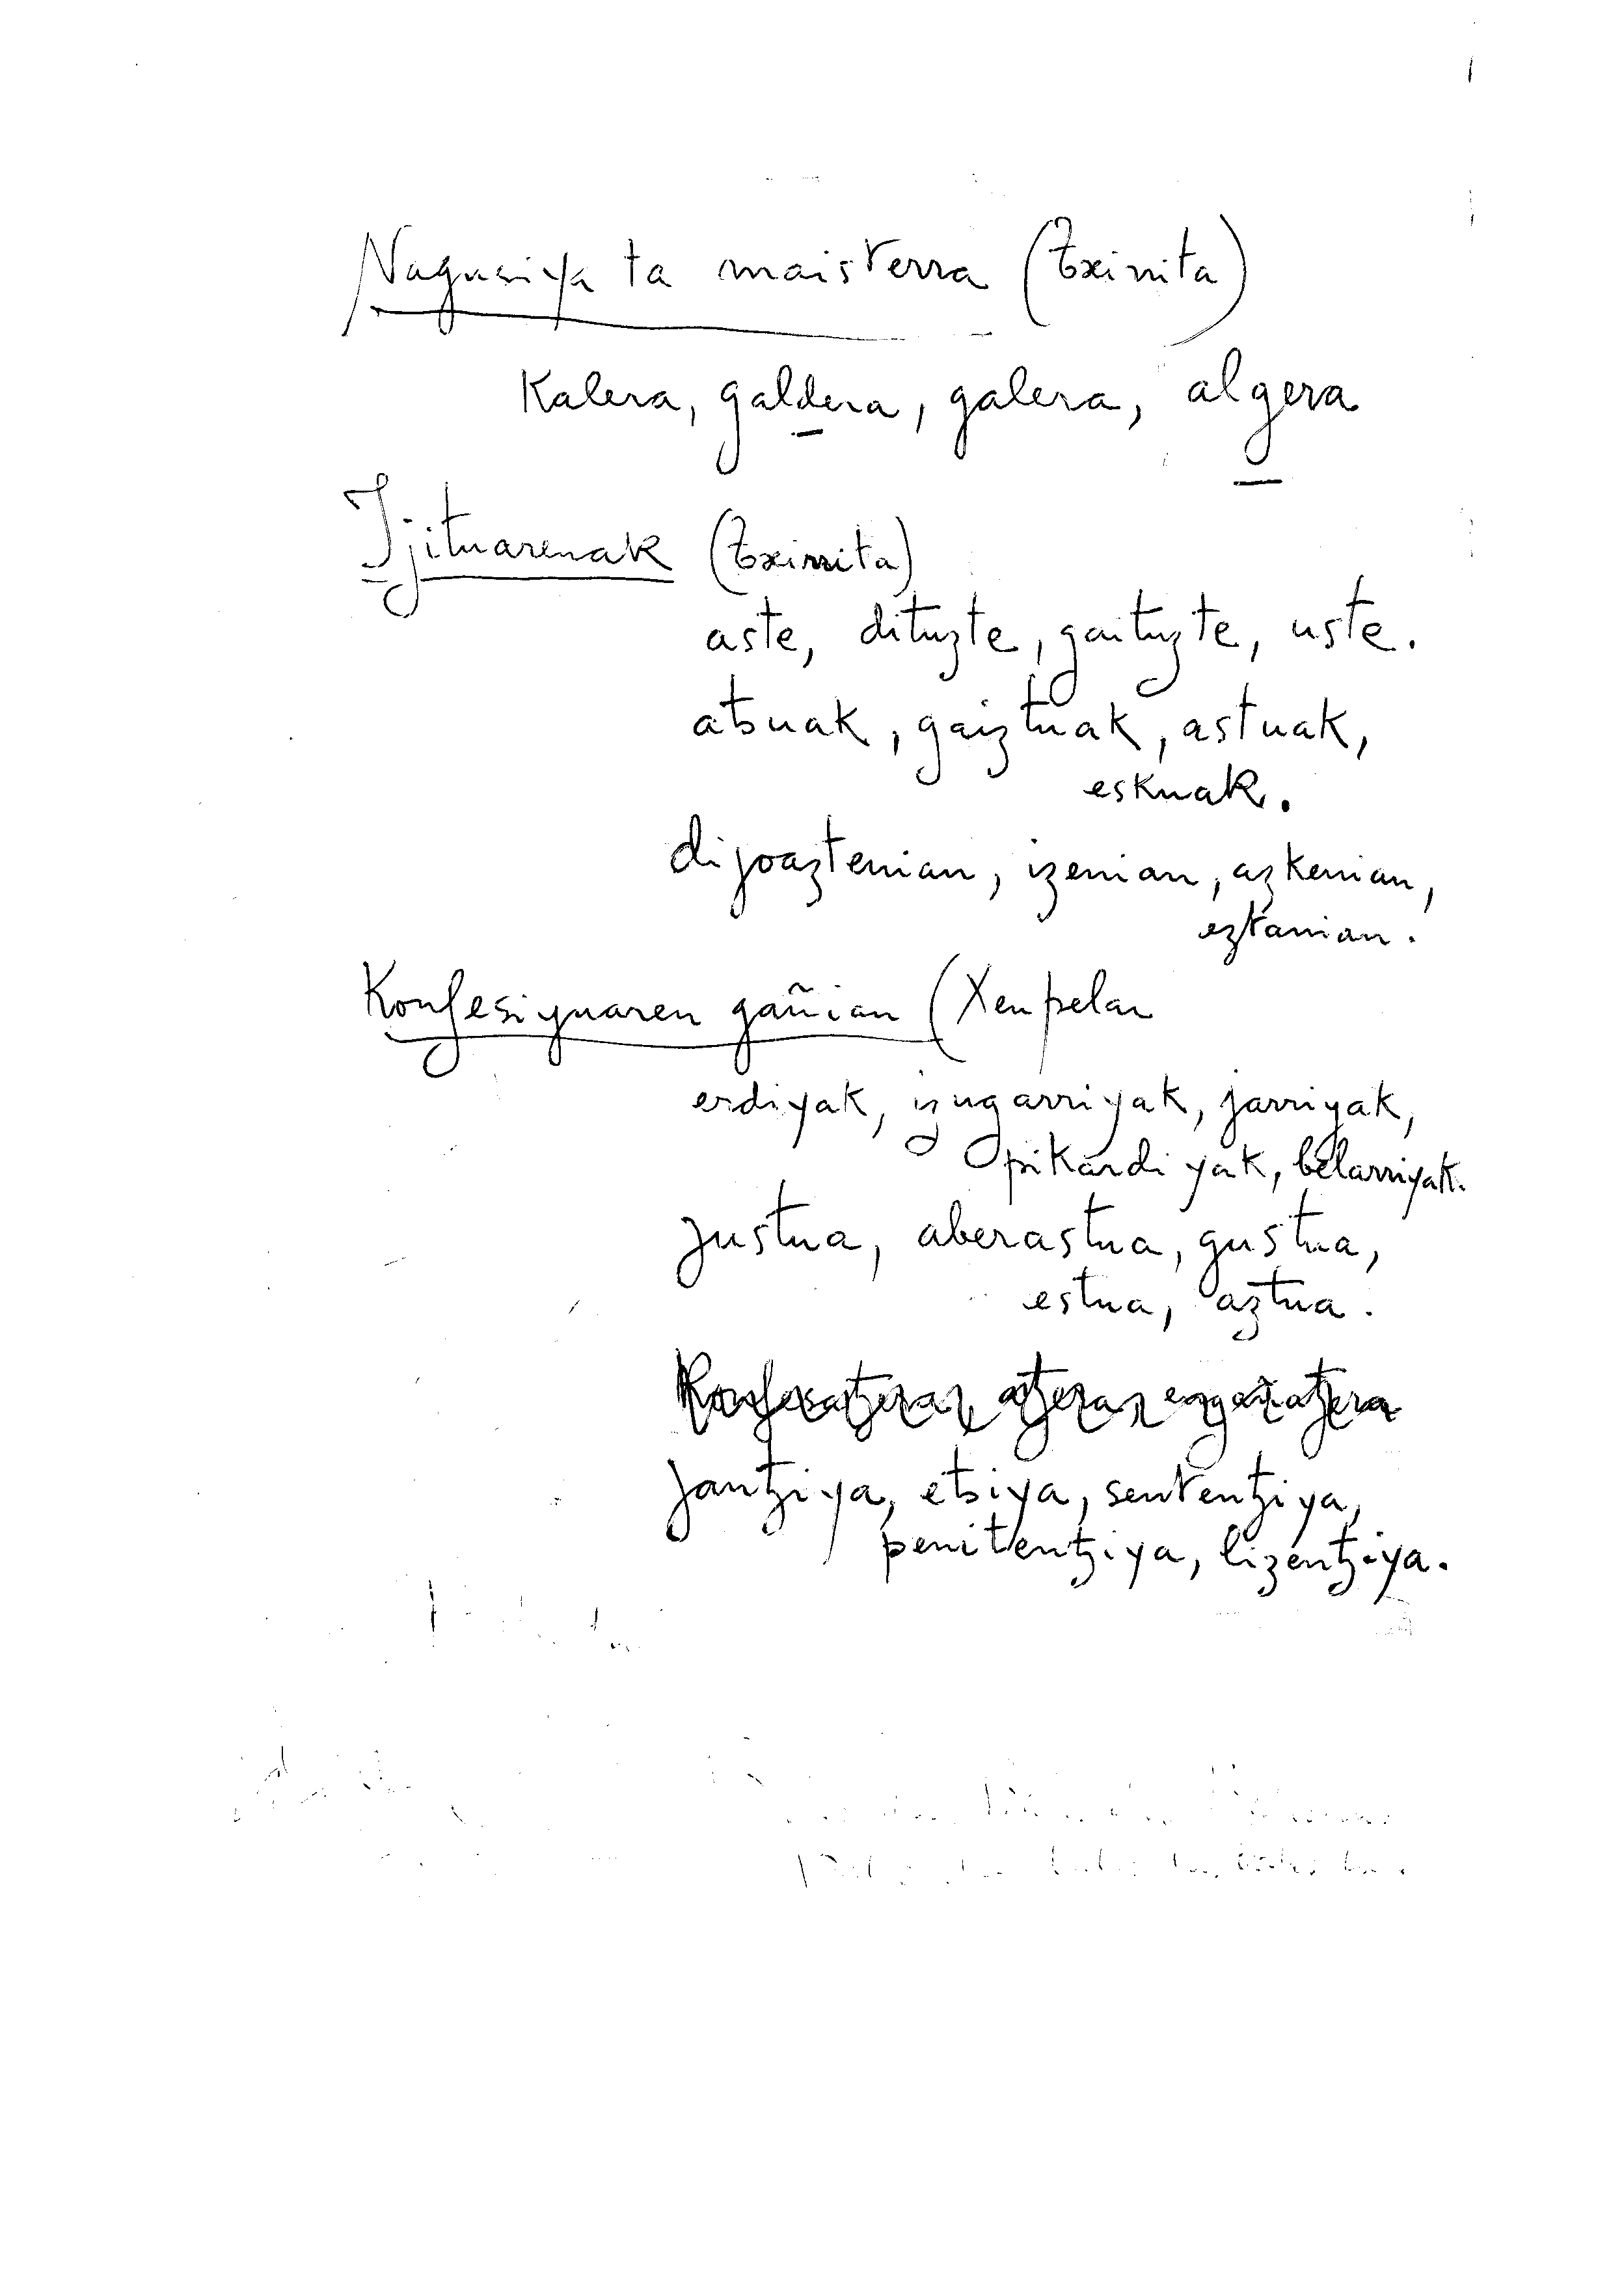 Nagusiya ta maisterra (Txirrita)
Kalera, galdera, galera, algera
Ijituarenak (Txirrita)
aste, dituzte, gaituzte, uste.
atsuak, gaiztuak, astuak,
eskuak.
dijoaztenian, izenian, azkenian,
eztanian.
Konfesiyuaren gañian (Xenpelar
erdiyak, izugarriyak, jarriyak,
pikardiyak, belarriyak.
justua, aberastua, gustua,
estua, aztua.
Konfesatzera, atzera, engañatzera
jantziya, etsiya, sententziya,
penitentziya, lizentziya.